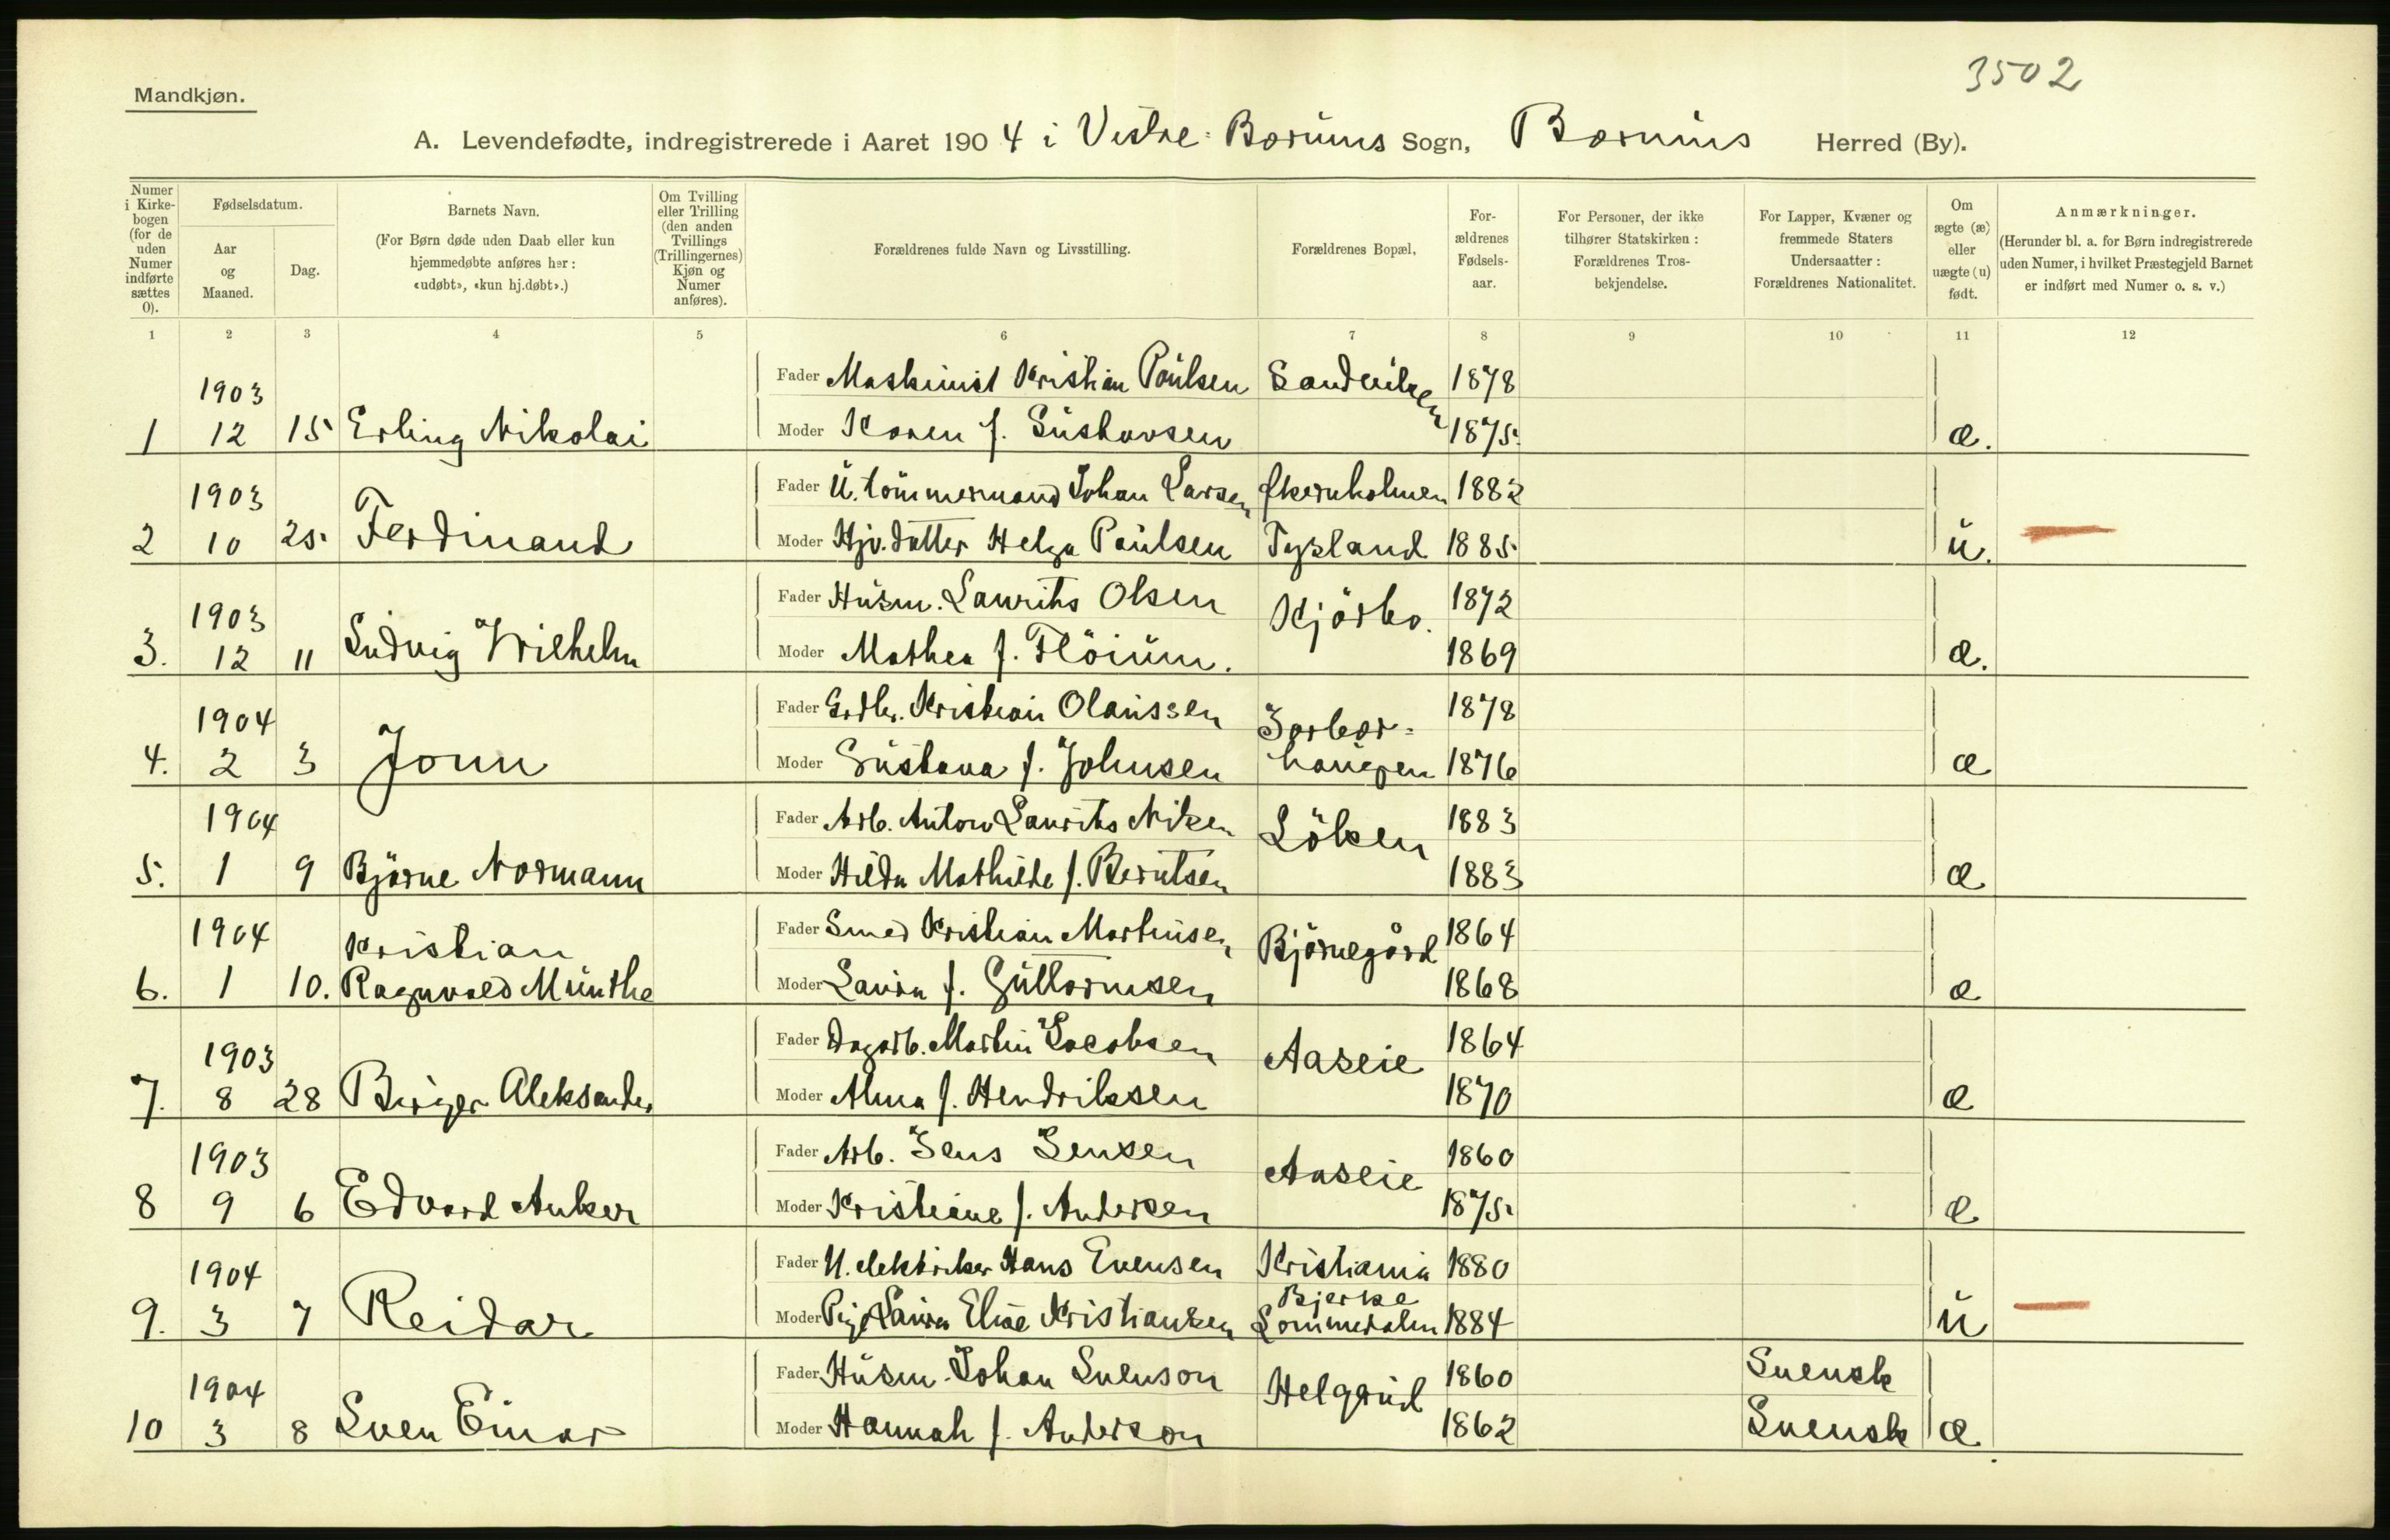 3502
Mandkjøn.
A. Levendefødte, indregistrerede i Aaret 1904 i Vestre-Bærums Sogn, Bærums Herred (By).
Numer i Kirkebogen (for de uden Numer indførte sættes 0).
Fødselsdatum.
Aar og Maaned.
Dag.
Barnets Navn.
(For Børn døde uden Daab eller kun hjemmedøbte anføres her: «udøbt», «kun hj.døbt».)
Om Tvilling eller Trilling (den anden Tvillings (Trillingernes) Kjøn og Numer anføres).
Forældrenes fulde Navn og Livsstilling.
Forældrenes Bopæl,
Forældrenes Fødselsaar.
For Personer, der ikke tilhører Statskirken: Forældrenes Trosbekjendelse.
For Lapper, Kvæner og fremmede Staters Undersaatter: Forældrenes Nationalitet.
Om ægte (æ) eller uægte (u) født.
Anmærkninger.
(Herunder bl. a. for Børn indregistrerede uden Numer, i hvilket Præstegjeld Barnet er indført med Numer o. s. v.)
1 2 3 4 5 6 7 8 9 10 11 12
1903 Fader Maskinist Kristian Paulsen Sandviken 1878
1 12 15 Erling Nikolai Moder Karen f. Gustavsen 1875. æ.
1903 Fader U. tömmermand Johan Larsen 1882
2 10 25. Ferdinand Moder Hjv. datter Helga Paulsen 1885 u.
1903 Fader Husm. Laurits Olsen Kjörbo. 1872
3. 12 11 Ludvig Wilhelm Moder Mathea f. Flöium. 1869 æ.
1904 Fader Kristian Olaussen 1878
4. 2 3 Jonn Moder Gustava f. Johnsen haugen 1876 æ
1904 Fader Arb. Anton Laurits Löken 1883
5. 1 9 Bjarne Normann Moder Hilda Mathilde f. Berntsen 1883 æ
1904 Kristian Fader Smed Kristian Martinsen Björnegård 1864
6. 1 10. Ragnvald Munthe Moder Laura f. Guttormsen 1868 æ
1903 Fader Dagarb. Martin Jacobsen Aaseie 1864
7. 8 28 Birger Aleksander Moder Alma f. Hendriksen 1870 æ
1903 Fader Arb. Jens Jensen Aaseie 1860
8 9 6 Edvard Anker Moder Kristiane f. Andersen 1875. æ
1904 Fader U. elektriker Hans Evensen Kristiania 1880
9. 3 7 Reidar Moder Pige Laura Elise Kristiansen Bjerke Lommedalen 1884 u
1904 Fader Husm. Johan Svenson Helgerud 1860 Svensk
10 3 8 Sven Einar Moder Hannah f. Anderson 1862 Svensk æ